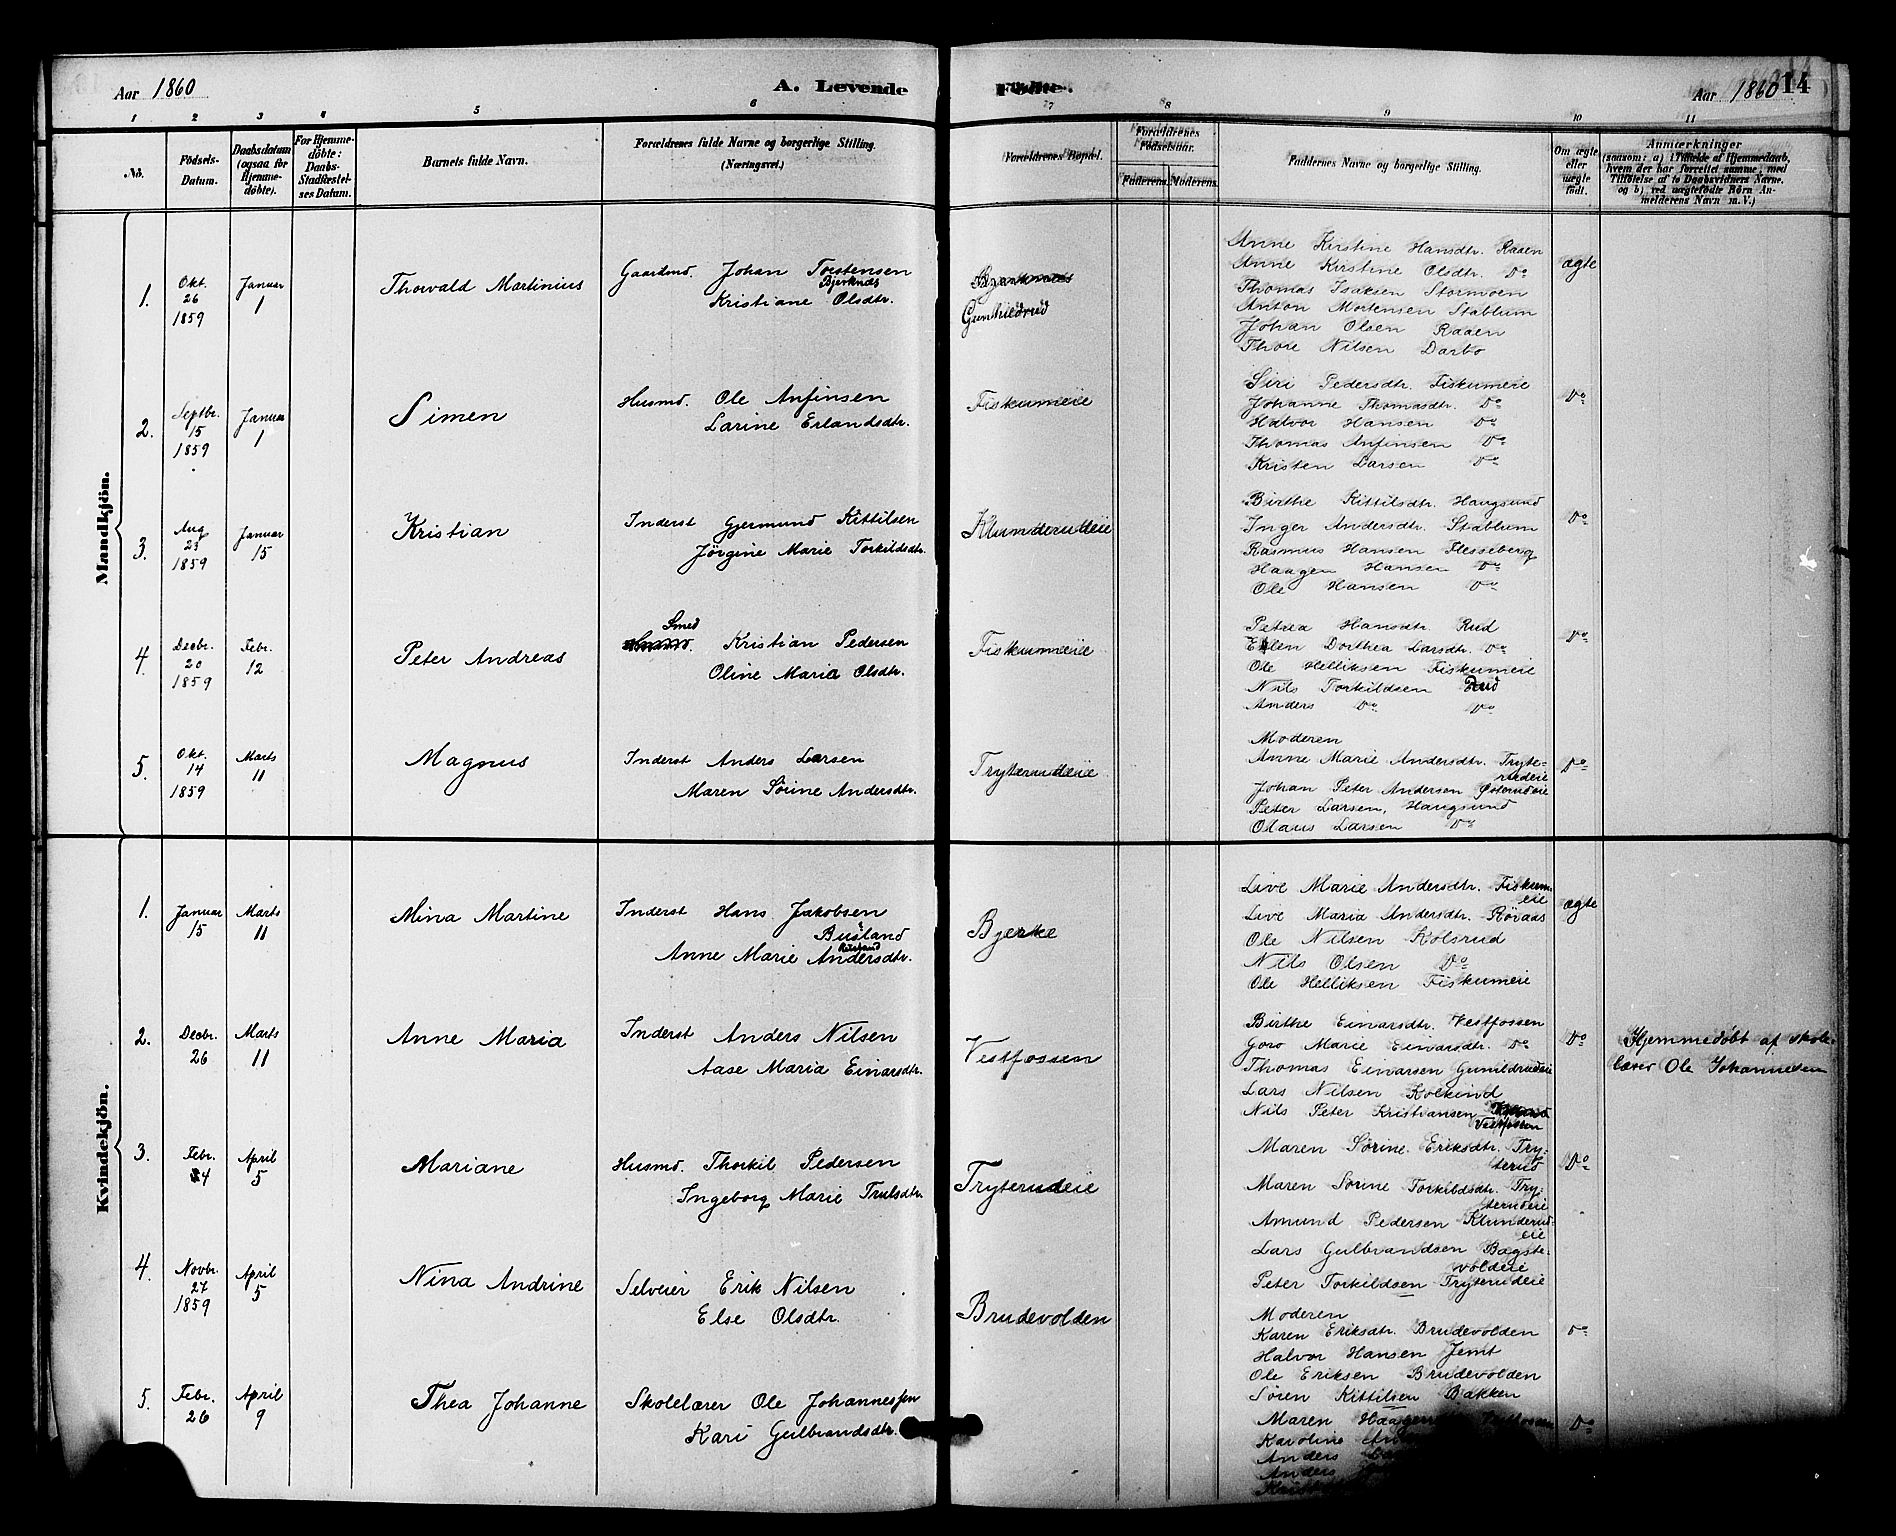 Aar 1860
A. Levende
Fødte.
Aar 1860
14
1
2
3
4
5
6
7
8
9
10
11
No.
Fødsels-
Datum.
Daabsdatum
(ogsaa for
Hjemme-
døbte).
For Hjemme-
døbte:
Daabs-
Stadfæstel-
ses Datum.
Barnets fulde Navn.
Forældrenes fulde Navne og borgerlige Stilling.
(Næringsvei.)
Forældrenes Bopæl.
Forældrenes
Fødselsaar.
Faderens.
Moderens.
Faddernes Navne og borgerlige Stilling.
Om ægte
eller
uægte
født.
Anmærkninger
(saasom: a) i Tilfælde af Hjemmedaab,
hvem der har forrettet samme, med
Tilføielse af to Daabsvidners Navne.
og b) ved uægtefødte Børn An-
melderens Navn m. V.)
Mandkjön.
1.
Okt.
26
1859
Januar
1
Thorvald Martinius
Gaardmd. Johan Torstensen
Bjerknes
Kristiane Olsdtr.
Gunhildrud
Anne Kirstine Hansdtr. Raaen
Anne Kirstine Olsdtr. Do
Thomas Isaksen Stormoen
Anton Mortensen Stablum
Johan Olsen Raaen
Thore Nilsen Darbo
ægte
2.
Septbr.
15
1859
Januar
1
Simen
Husmd. Ole Anfinsen
Larine Erlandsdtr.
Fiskumeie
Siri Pedersdtr. Fiskumeie
Johanne Thomasdtr. Do
Halvor Hansen Do
Thomas Anfinsen Do
Kristen Larsen Do
Do
3.
Aug
23
1859
Januar
15
Kristian
Inderst Gjermund Kittilsen
Jörgine Marie Torkildsdtr.
Klunderudeie
Birthe Kittilsdtr. Haugsund
Inger Andersdtr. Stablum
Rasmus Hansen Flesseberg
Haagen Hansen Do
Ole Hansen Do
Do
4.
Decbr.
20
1859
Febr.
12
Peter Andreas
Smed
Kristian Pedersen
Oline Maria Olsdtr.
Fiskumeie
Petrea Hansdtr. Rud
Ellen Dorthea Larsdtr. Do
Ole Helliksen Fiskumeie
Nils Torkildsen Rud
Anders Do Do
Do
5.
Okt.
14
1859
Marts
11
Magnus
Inderst Anders Larsen
Maren Sörine Andersdtr.
Tryterudeie
Moderen
Anne Marie Andersdtr. Tryte-
rudeie
Johan Peter Andersen Östenudeie
Peter Larsen, Haugsund
Olaus Larsen Do
Do
Kvindekjön.
1.
Januar
15
Marts
11
Mina Martine
Inderst Hans Jakobsen
Busland
Anne Marie Andersdtr.
Bjerke
Live Marie Andersdtr. Fiskum-
eie
Live Maria Andersdtr. Röraas
Ole Nilsen Kolsrud
Nils Olsen Do
Ole Helliksen Fiskumeie
ægte
2.
Decbr.
26
Marts
11
Anne Maria
Inderst Anders Nilsen
Aase Maria Einarsdtr.
Vestfossen
Birthe Einarsdtr. Vestfossen
Goro Marie Einarsdtr. Do
Thomas Einarsen Gunildrudeie
Lars Nilsen Kolkind
Nils Peter Kristiansen
Vestfossen
Do
Hjemmedöbt af skole-
lærer Ole Johannesen
3.
Febr.
4
April
5
Mariane
Husmd. Thorkil Pedersen
Ingeborg Marie Trulsdtr.
Tryterudeie
Maren Sörine Eriksdtr. Try-
terud
Maren Sörine Torkildsdtr. Try-
terudeie
Amund Pedersen Klunderud-
eie
Lars Gulbrandsen Bagste-
voldeie
Peter Torkildsen Tryterudeie
Do
4.
Novbr.
27
1859
April
5
Nina Andrine
Selveier Erik Nilsen
Else Olsdtr.
Brudevolden
Moderen
Karen Eriksdtr. Brudevolden
Halvor Hansen Jemt
Ole Eriksen Brudevolden
Sören Kittilsen Bakken
Do
5.
Febr.
26
April
9
Thea Johanne
Skolelærer Ole Johannessen
Kari Gulbrandsdtr.
Maren Vestfossen
Karoline
Anders
Anders
Do